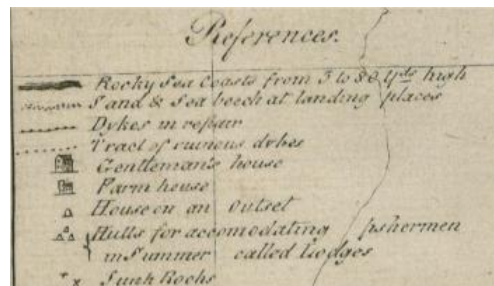 References.
Rocky Sea Coasts from 5 to 80 yds high
Sand & Sea beech at landing places
Dykes in repair
Tract of ruinous dykes
Gentleman's house
Farm house
House on an Outset
Hutts for accomodating fishermen
in Summer called Lodges
Sunk Rocks